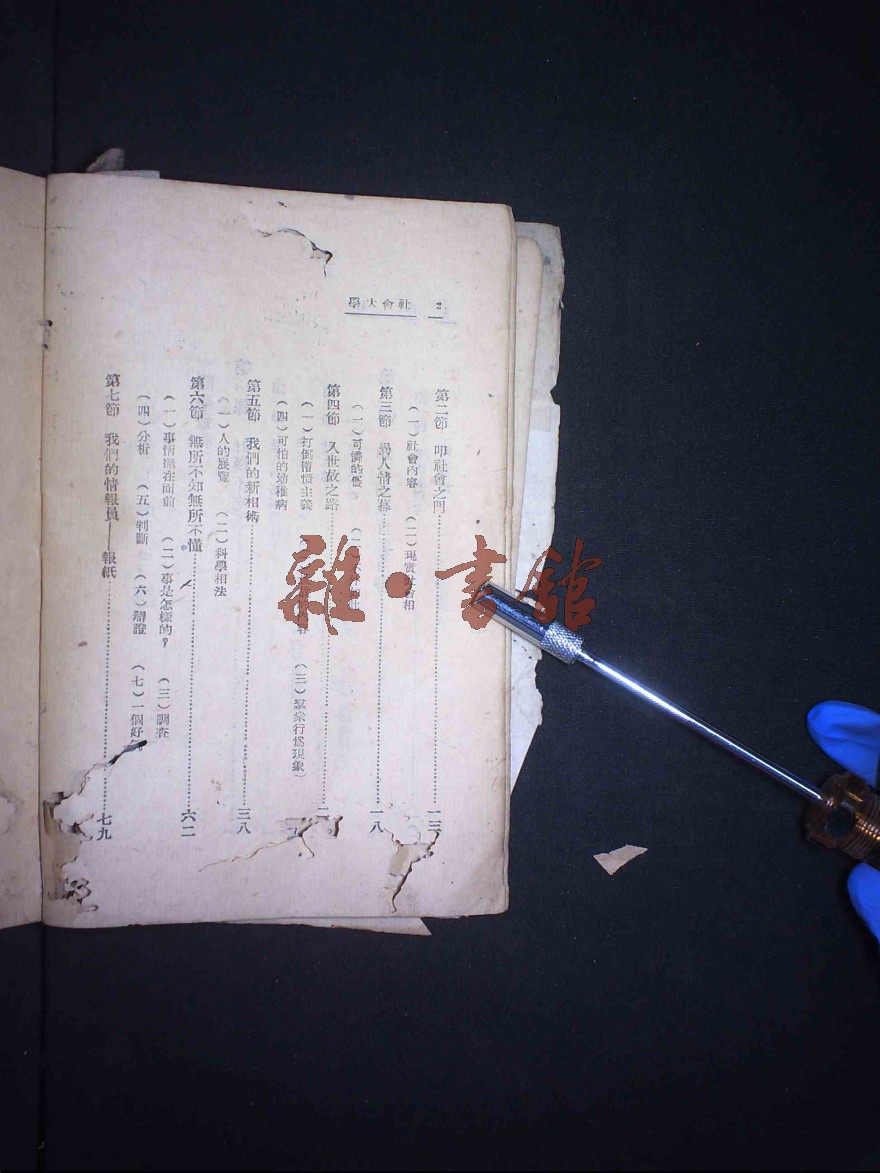 2 社會大學
第二節 叩社會之門 一三
（一）社會內容 （二）現實社會相
第三節 人情之幕 一八
（一）可憐的
第四節 入世故之路
（一）打倒情慣主義 （三）羣衆行爲現象）
（四）可怕的幼稚病
第五節 我們的新相術 三八
（一）人的展覽 （二）科學相法
第六節 無所不知無所不懂 六二
（一）事情擺在面前 （二）事是怎樣的？ （三）調查
（四）分析 （五）判斷 （六）辯證 （七）一個好
第七節 我們的情報員——報紙 七九
雜·書館